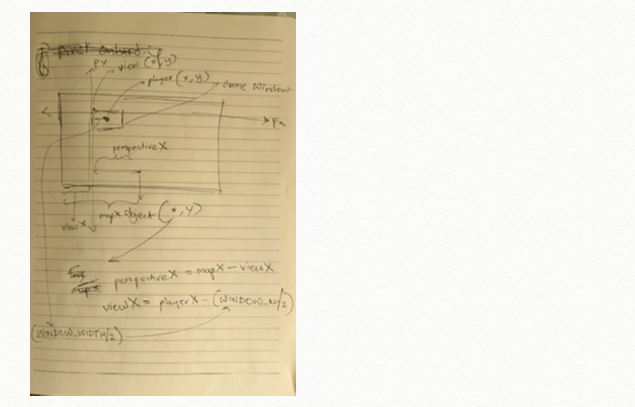 Pivot onboard:
Py
view(x,y)
player(x,y)
Game Window
Px
perspectiveX
mapX object(x,y)
viewX
mapX
perspectiveX = mapX - viewX
viewX = playerX - (WINDOW_W/2)
(WINDOW_WIDTH/2)